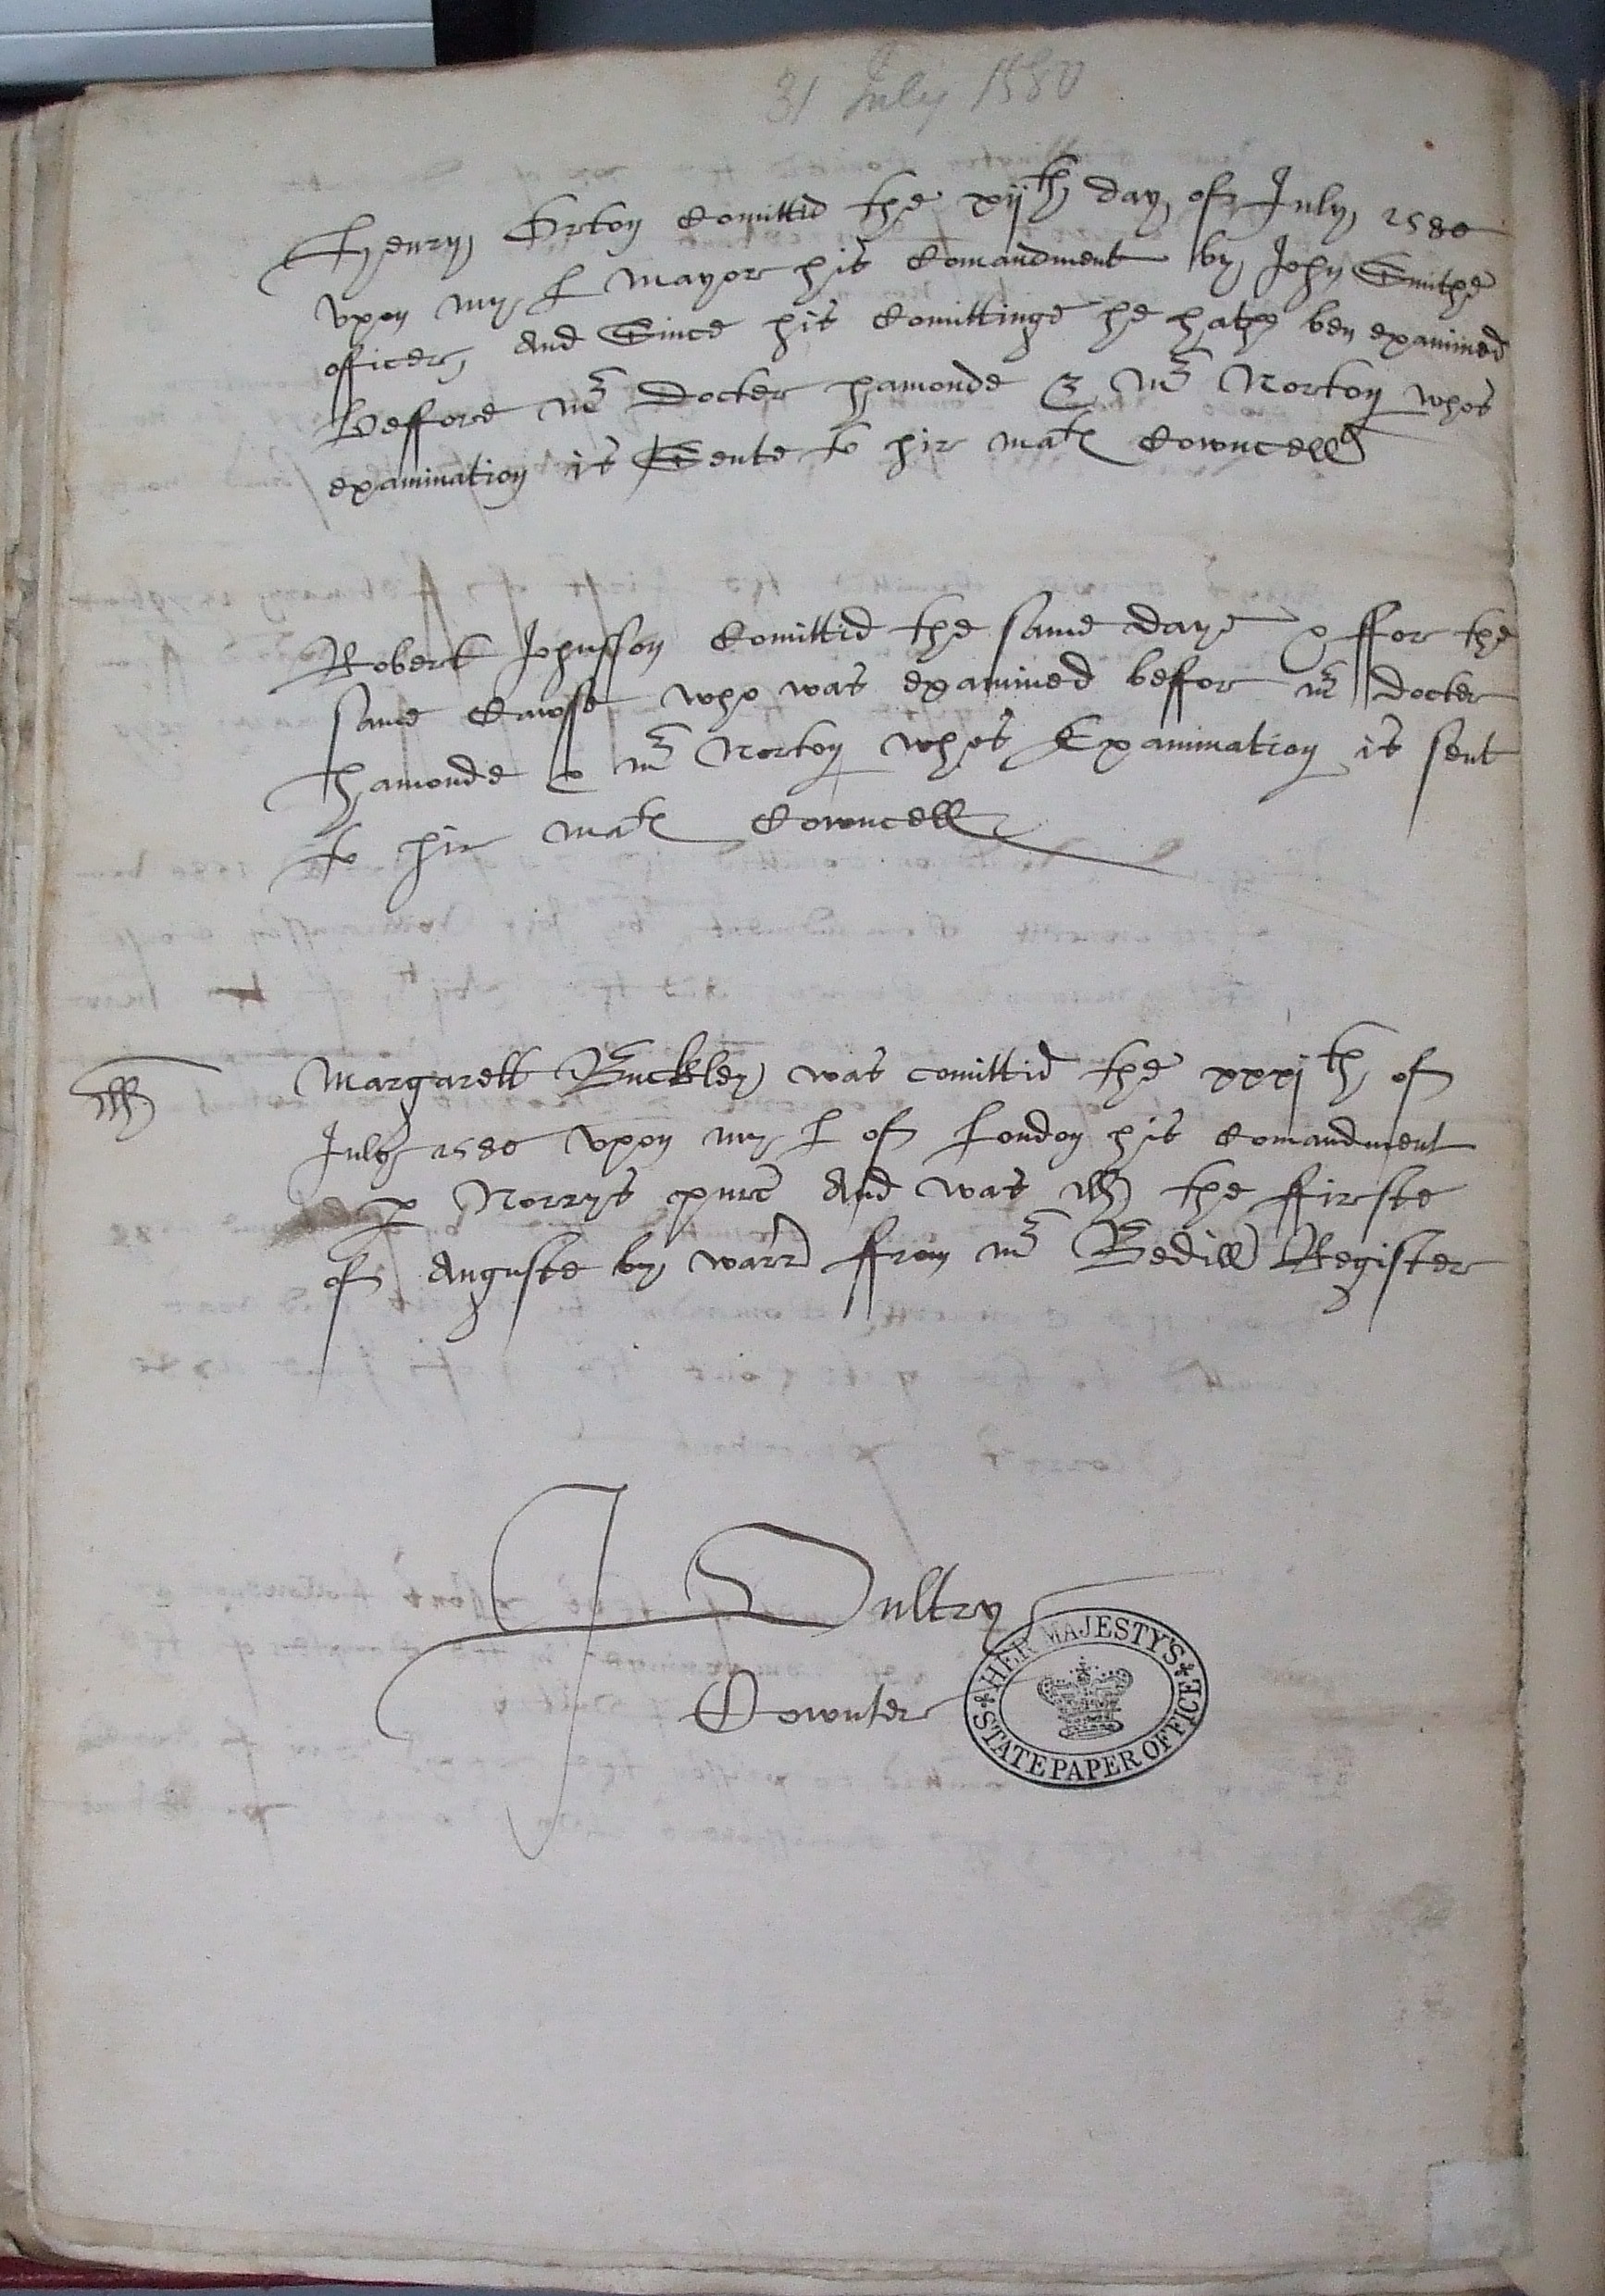 31 July 1580
Henry Orton Comittid the xijth day of July 1580
vpon my L Mayor his Comandment by John Smithe
officer, And Since his Comittinge he hathe ben examined
beffore mr Docter hamonde & mr Norton whos
examination is Sente to hir matis Cowncell
Robert Johnsson Comittid the same daye & ffor the
same Cawsse who was examined beffor mr docter
Hamonde & mr Norton whos Examination is sent
to hir matis Cowncell
Margarett Buckley was comittid the xxxjth of
July 1580 vpon my L of London his Comandment
p Norrys purs And was the ffirste
of Auguste by warr ffrom mr Bedill Register
Pultry
Cownter
HER MAJESTY'S
STATE PAPER OFFICE